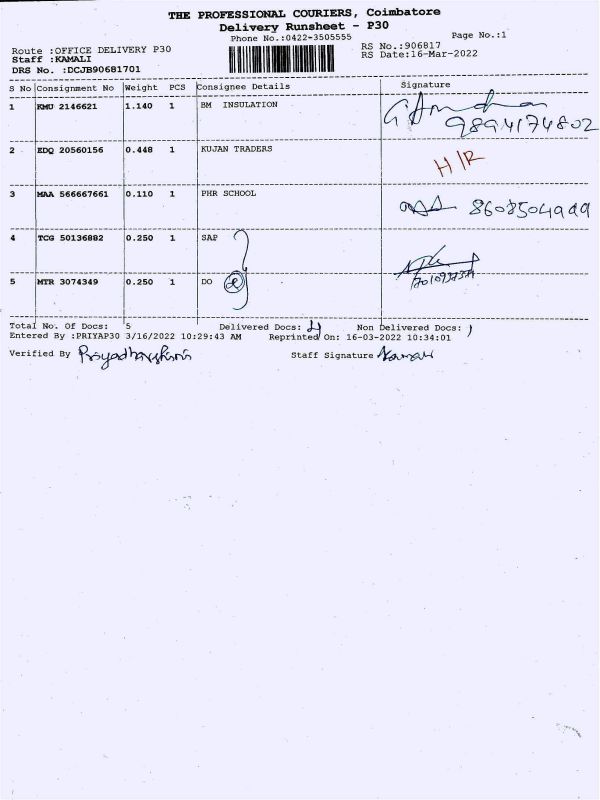 THE PROFESSIONAL COURIERS, Coimbatore
Delivery Runsheet - P30
Phone No.:0422-3505555 Page No.:1
Route :OFFICE DELIVERY P30 RS No.:906817
Staff :KAMALI RS Date:16-Mar-2022
DRS No. :DCJB90681701
S No Consignment No Weight PCS Consignee Details Signature
1 KMU 2146621 1.140 1 BM INSULATION
9894174802
2 EDQ 20560156 0.448 1 KUJAN TRADERS H/R
3 MAA 566667661 0.110 1 PHR SCHOOL 8608504999
4 TCG 50136882 0.250 1 SAP
5 MTR 3074349 0.250 1 DO 2
Total No. Of Docs: 5 Delivered Docs: 4 Non Delivered Docs: 1
Entered By :PRIYAP30 3/16/2022 10:29:43 AM Reprinted On: 16-03-2022 10:34:01
Verified By Priyadharshini Staff Signature Kamali